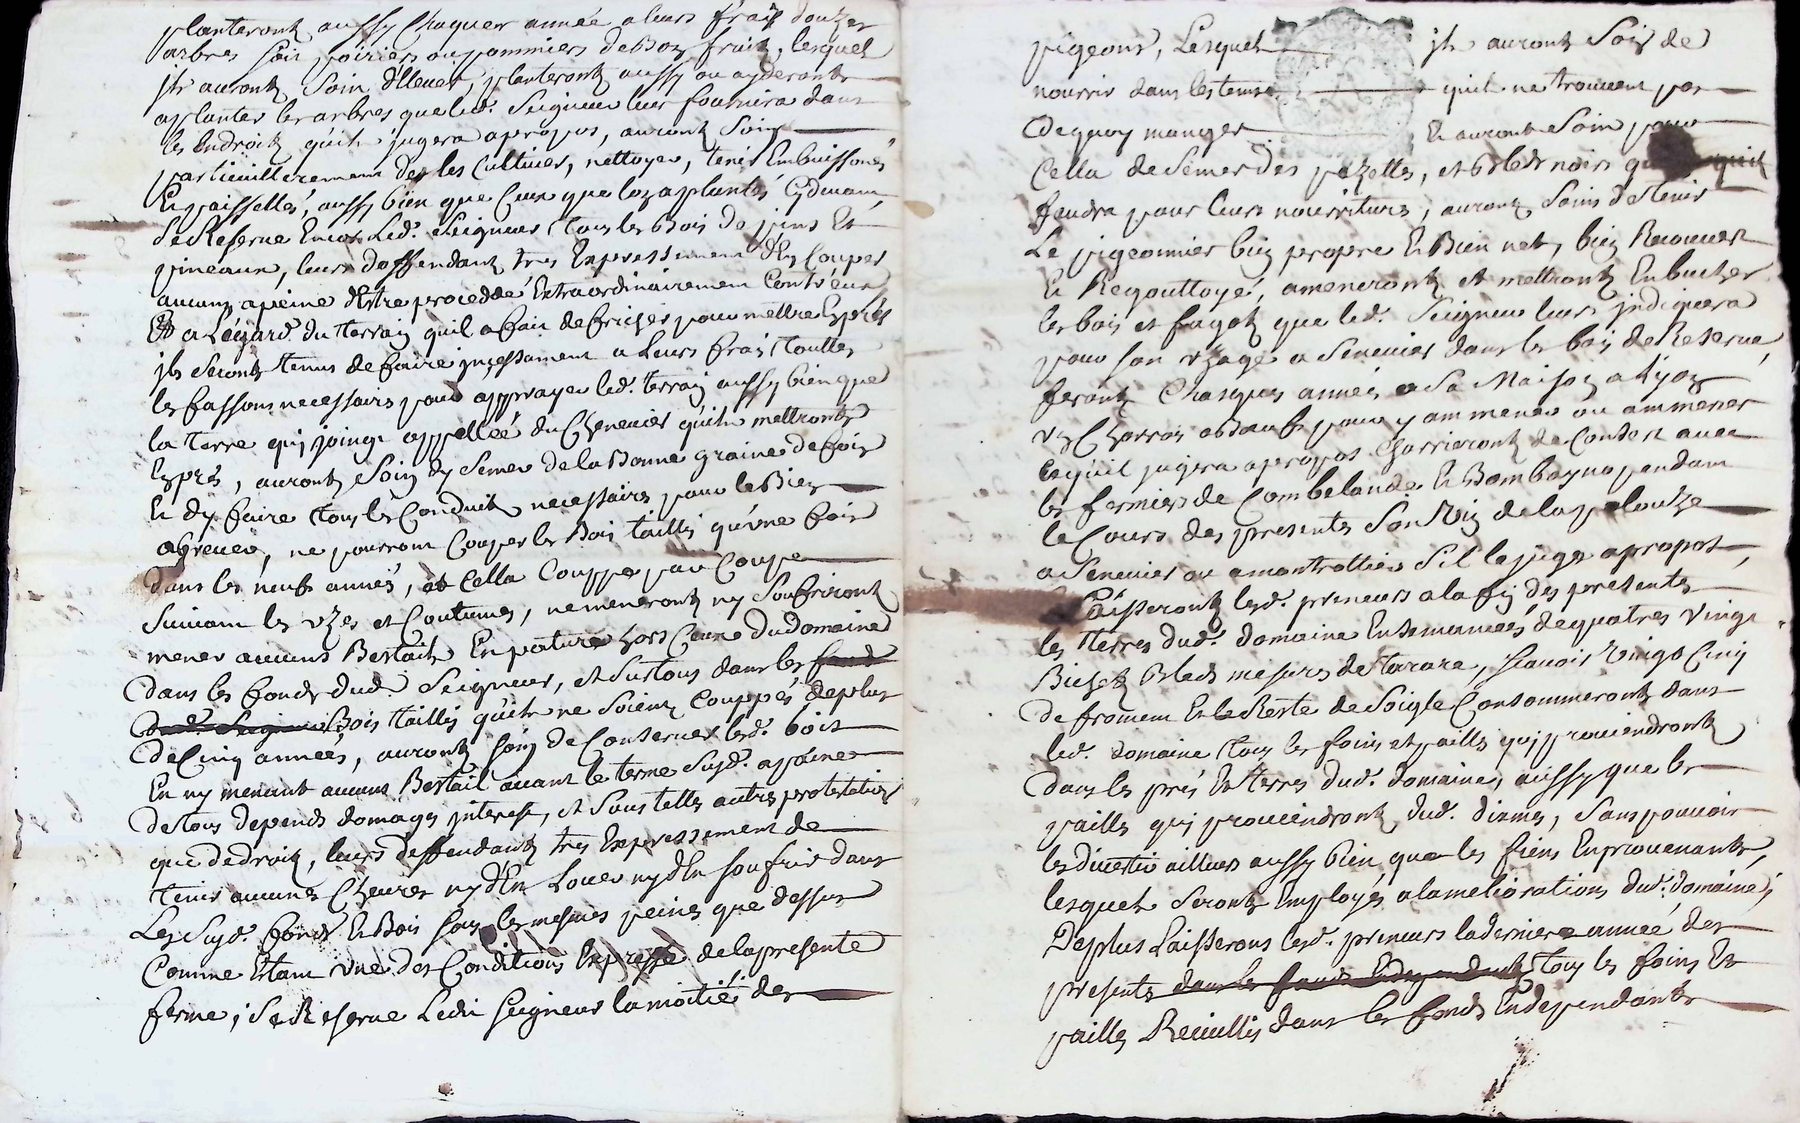 planteront aussy chaques année a leurs frais douzes
arbres soit poiriers ou pommiers de bon fruit, lesquels
ils auront soin d'llever, planteront aussy ou ayderont
a planter les arbres que led. Seigneur leur fournira dans
les endroits quil jugera apropos, auront soin
particuillierement de les cultiver, nettoyer, tenir Embuissonés
Et paisselles, aussy bien que Ceux que lon a plantés Cydevant,
Se Reserve Encor Led. Seigneur tous les bois de pins Et
pineaux, leurs deffendant tres Expressement d'En Couper
aucuns apeine d'Estre procedde Extraordinairement Contr'eux
Et a L'egard du terrain quil a fait defricher pour mettre En prés
ils Seront tenus de faire incessament a Leurs frais touttes
les fassons necessaires pour appraye led. terrain aussy bien que
la terre qui joingt appellée du Chenevier quils mettront
En prés, auront Soin dy Semer de la Bonne graine de foin
Et dy faire tous les Conduits necessaires pour le Bien
abreuer, ne pourront Couper les Bois taillis qu'une fois
dans les neufs annés, et Cella Couppe par Coupe
Suivant les uzes et Coutumes, ne meneront ny Souffriront
mener aucuns Bestails En pature hors Ceux du Domaine
Dans les fonds dud. Seigneur, et Surtous dans les fonds
dud. Seigneur Bois taillis quils ne Soient Couppés deplus
de Cinq années, auront soin de Conserver lesd. bois
En ny menant aucuns Bestail avant le terme Susd. apeine
de tous depends domages interest, et Sous telles autres protestations
que de droit, leurs deffendant tres Expressement de
tenir aucunes Chevres ny d'En Louer ny d'En souffrir dans
Les Susd. fonds Et Bois sous les mesmes peines que dessus
Comme Etant une des Conditions Expresse de la presente
ferme; Se Reserve Ledit Seigneur la moitié des
pigeons, Lesquels ils auront Soin de
nourrir dans les tems quils ne trouvent pas
dequoy manger Et auront Soin pour
Cella de Semer des pezettes, et bleds noirs quil
faudra pour leurs nourritures, auront Soins de tenir
Le pigeonnier bien propre Et Bien net, bien Recouvert
Et Regouttoyé, ameneront et mettront En bucher
les bois et fagots que led. Seigneur leurs indiquera
pour son uzage a Senevier dans les bois de Reserve,
feront Chasques année a Sa Maison a Lyon
un Charroi absous pour y ammener ou ammener
cequil jugera apropos Charrieront de Condort avec
les fermiers de Combelande Et Bombayno pendant
le Cours des presentes Son Vin de la pelouze
a Senevier ou a montrottier Sil le juge apropos,
Laisseront lesd. preneurs a la fin des presentes
les terres dud. domaine Ensemancés de quatres vingt
Bichets bleds mesures de tarare, sçavoir Vingt Cinq
de froment Et le Reste de Soigle Consommeront dans
led. domaine tous les foins et pailles qui proviendront
dans les prés Et terres dud. domaine, aussy que les
pailles qui proviendront dud. dixmes, Sans pouvoir
les divertir ailleurs aussy bien que les fiens Enprovenants,
lesquels Seront Employés a lameliorations dud. domaine;
Deplus Laisserons lesd. preneurs la derniere année des
presents dans les fonds Independants tous les foins Et
pailles Recuillis dans les fonds Independants